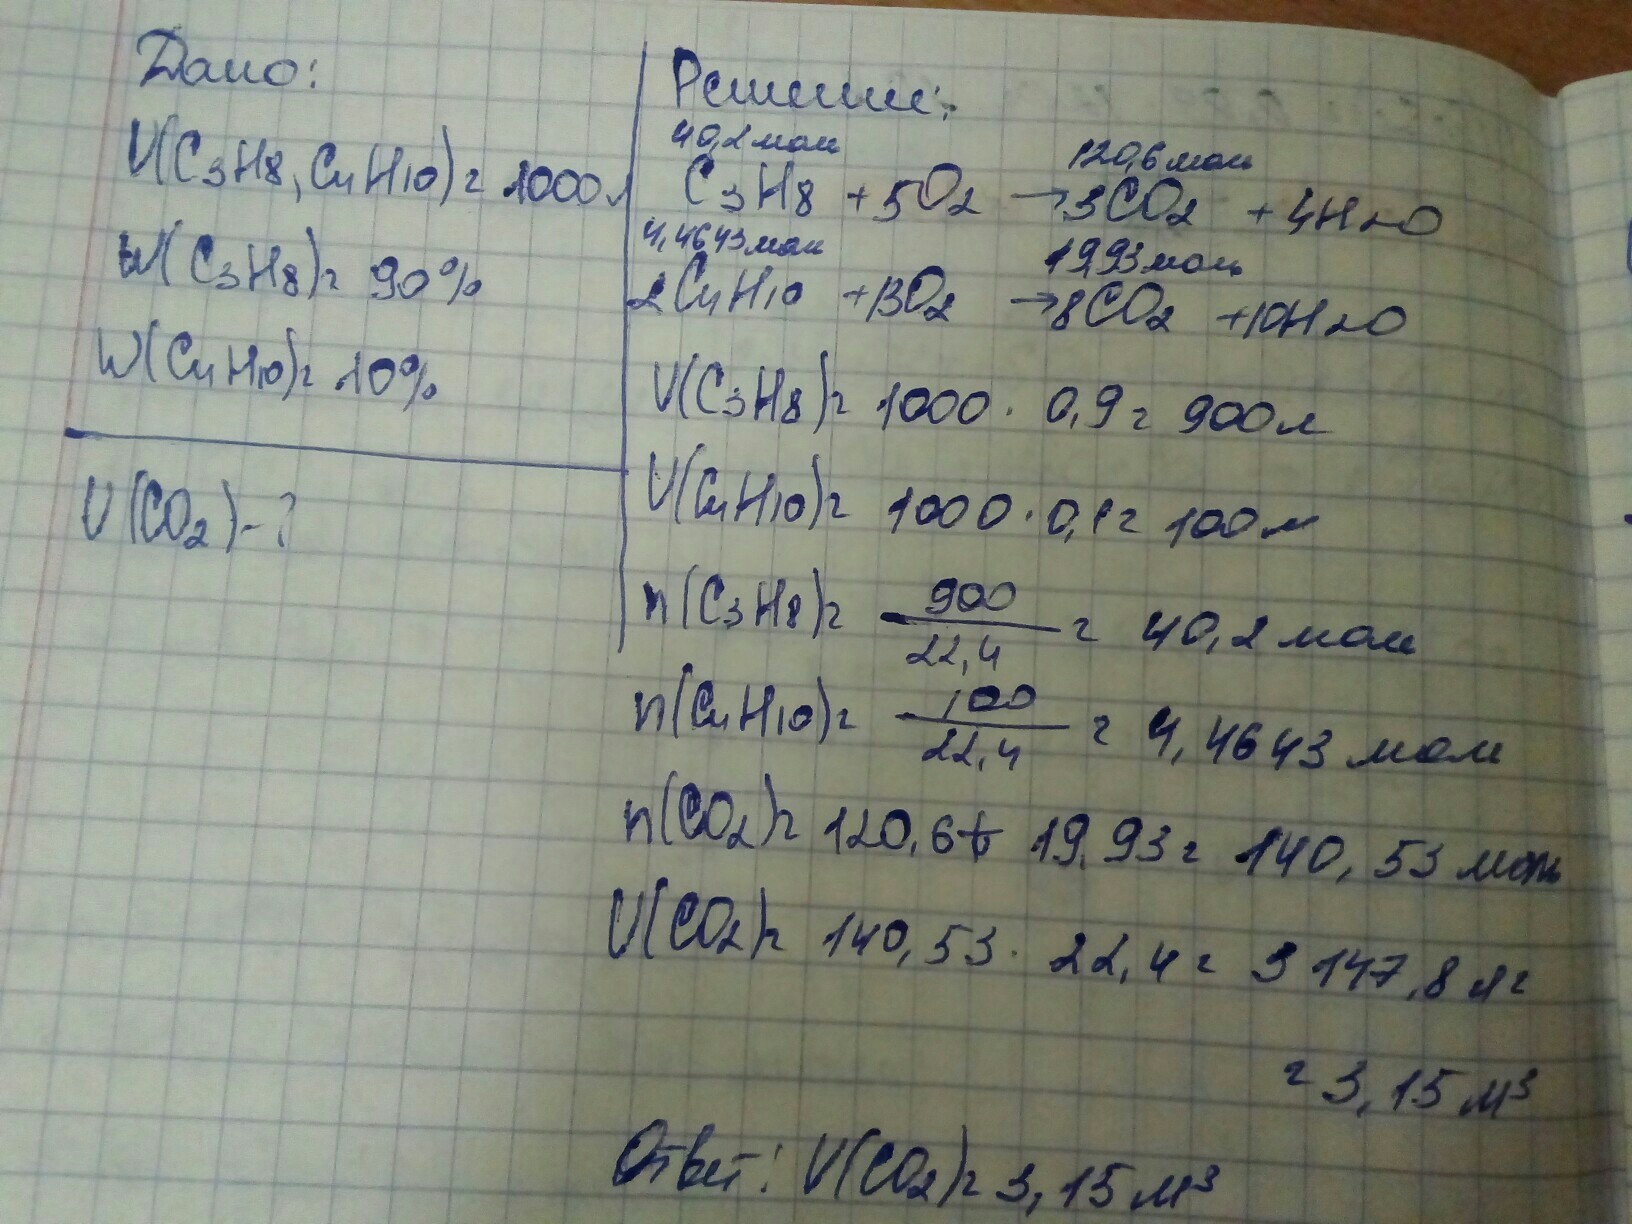 Дано:
V(C3H8, C4H10) = 1000л
W(C3H8) = 90%
W(C4H10) = 10%
V(CO2) - ?
Решение:
40,2 моль 120,6 моль
C3H8 + 5O2 → 3CO2 + 4H2O
4,4643 моль 19,93 моль
2C4H10 + 13O2 → 8CO2 + 10H2O
V(C3H8) = 1000 · 0,9 = 900л
V(C4H10) = 1000 · 0,1 = 100л
n(C3H8) = 900/22,4 = 40,2 моль
n(C4H10) = 100/22,4 = 4,4643 моль
n(CO2) = 120,6 + 19,93 = 140,53 моль
V(CO2) = 140,53 · 22,4 = 3147,8 л =
= 3,15 м³
Ответ: V(CO2) = 3,15 м³